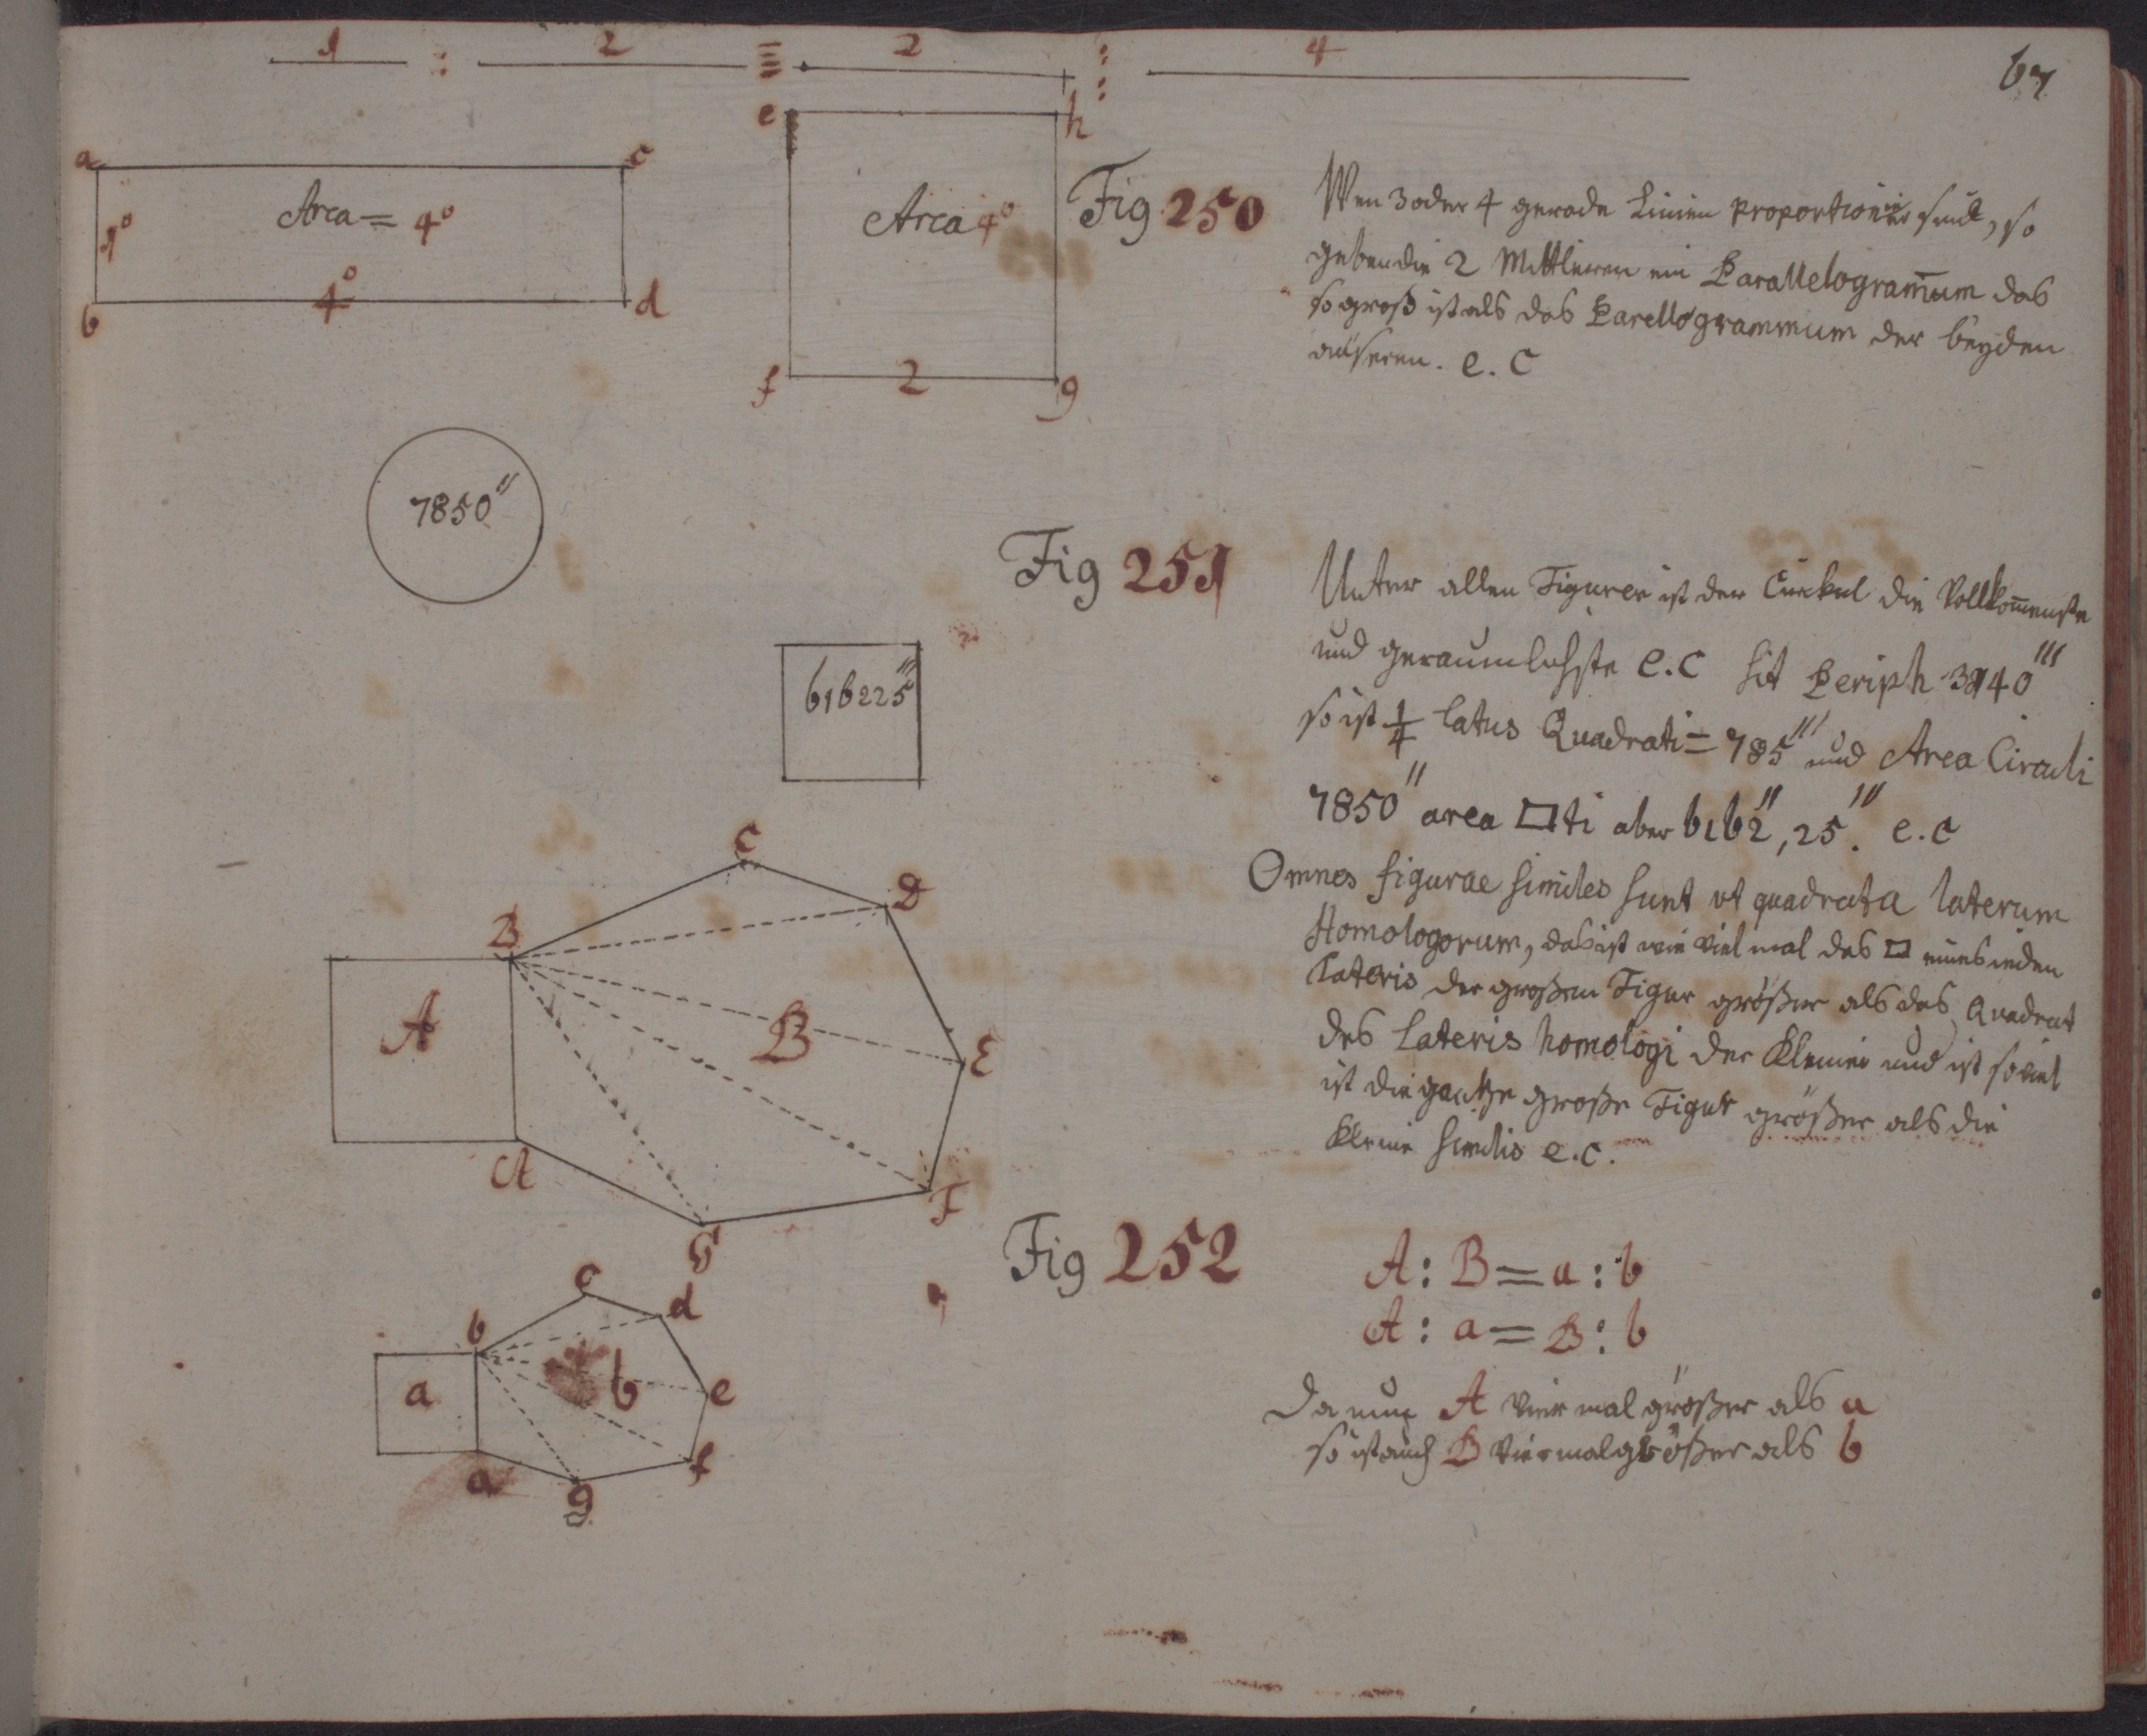 1 : 2 ≡ 2 ⋮ 4
67
a c
Area = 4°
1°
b 4° d
e h
Area 4°
f 2 g
Fig 250
Wen 3 oder 4 gerade Linien proportionir sind, so
geben die 2 Mittleren ein Parallelogram̄um das
so groß ist als das Parellogrammum der beyden
äuseren. e. c
7850''
Fig 251
616225'''
Unter allen Figuren ist der Circkul die Vollkom̄enste
und geraumlichste e.c sit Periph 3140'''
so ist 1/4 latus Quadrati = 785''' und Area Circuli
7850'' area □ti aber 6162'', 25'''. e.c
Omnes figurae similes sunt ut quadrata laterum
Homologorum, das ist wie viel mal das □ eines ieden
Lateris der großen Figur größer als das Quadrat
des Lateris homologi der Kleinen und ist so viel
ist die gantze große Figur größer als die
Kleine similis e.c.
C
D
B
A B
E
A
F
G
Fig 252
c
d
b
a b
e
f
a
g
A : B = a : b
A : a = B : b
Da nun A vier mal größer als a
so ist auch B viermal größer als b